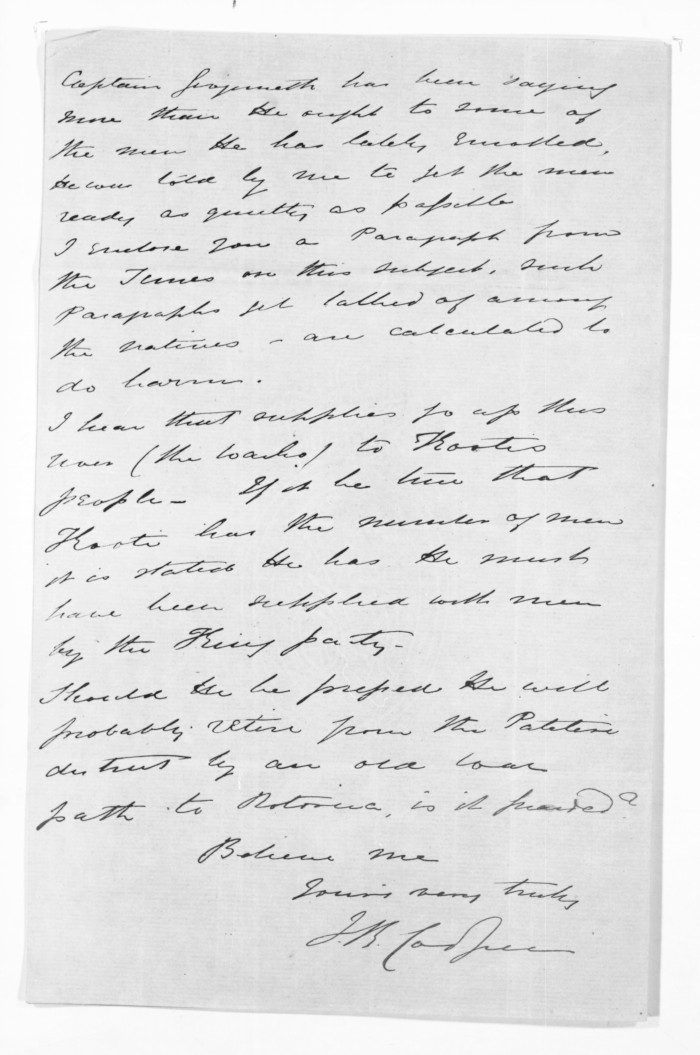 Captain has been saying
more than He ought to some of
the men He has lately Enrolled,
He was told by me to get the men
ready as quietly as possible
I Enclose You a Paragraph from
the Times on this subject, such
Paragraphs get talked of among
the natives - are calculated to
do harm.
I hear that supplies go up this
river (the Waiho) to Kootis
people - If it be true that
Kooti has the number of men
it is stated He has He must
have been supplied with men
by the King party -
Should He be pressed He will
probably retire from the Patetere
district by an old war
path to Rotorua, is it guarded?
Believe me
Yours very truly